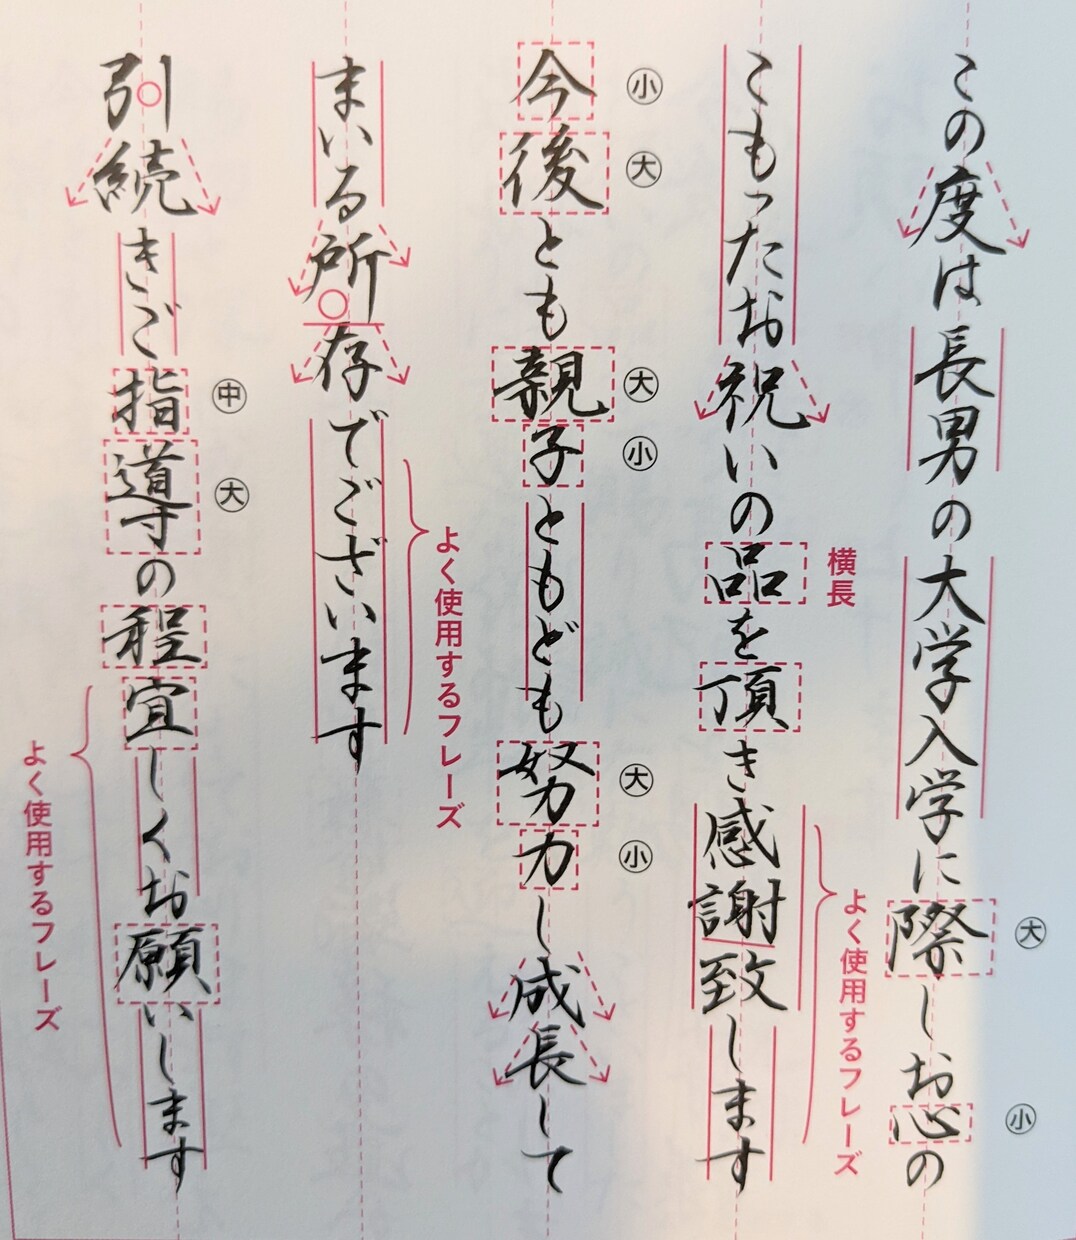 この度は長男の大学入学に際しお心の
大
小
よく使用するフレーズ
こもったお祝いの品を頂き感謝致します
横長
今後とも親子ともども努力し成長して
小
大
大
小
大
小
よく使用するフレーズ
まいる所存でございます
引続きご指導の程宜しくお願いします
中
大
よく使用するフレーズ